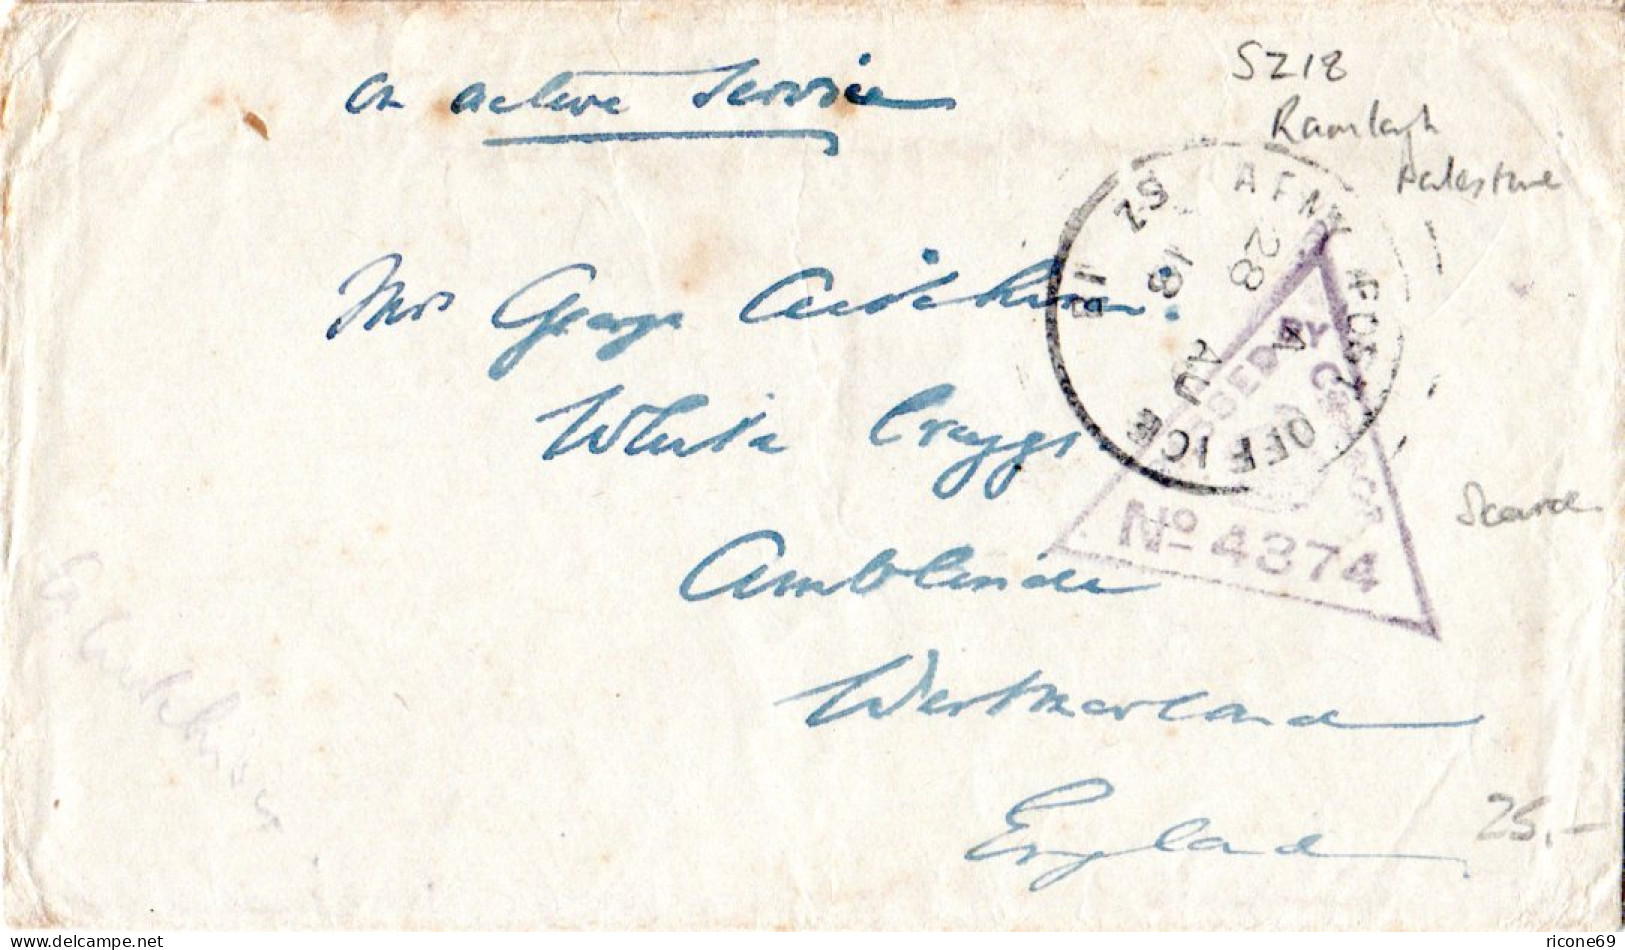 On active Service
SZ18
Ramlagh
Palestine
ARMY POST OFFICE
SZ
18
28 AU 18
A
PASSED BY
CENSOR
No 4374
Mrs George Aitchison.
White Craggs
Ambleside
Westmorland
England
Scarce
25.-
delcampe.net
ricone69